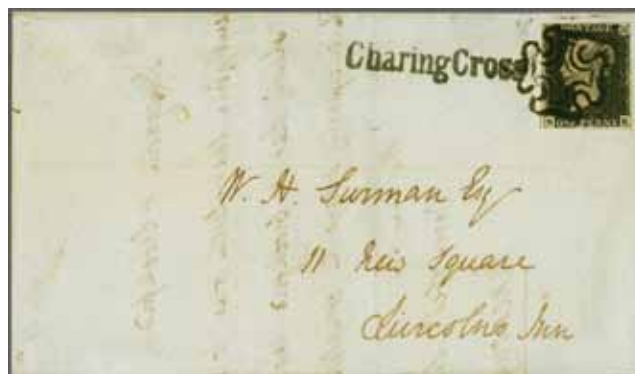 Charing Cross
POSTAGE
ONE PENNY
W. H. Surman Esq
11 New Square
Lincolns Inn